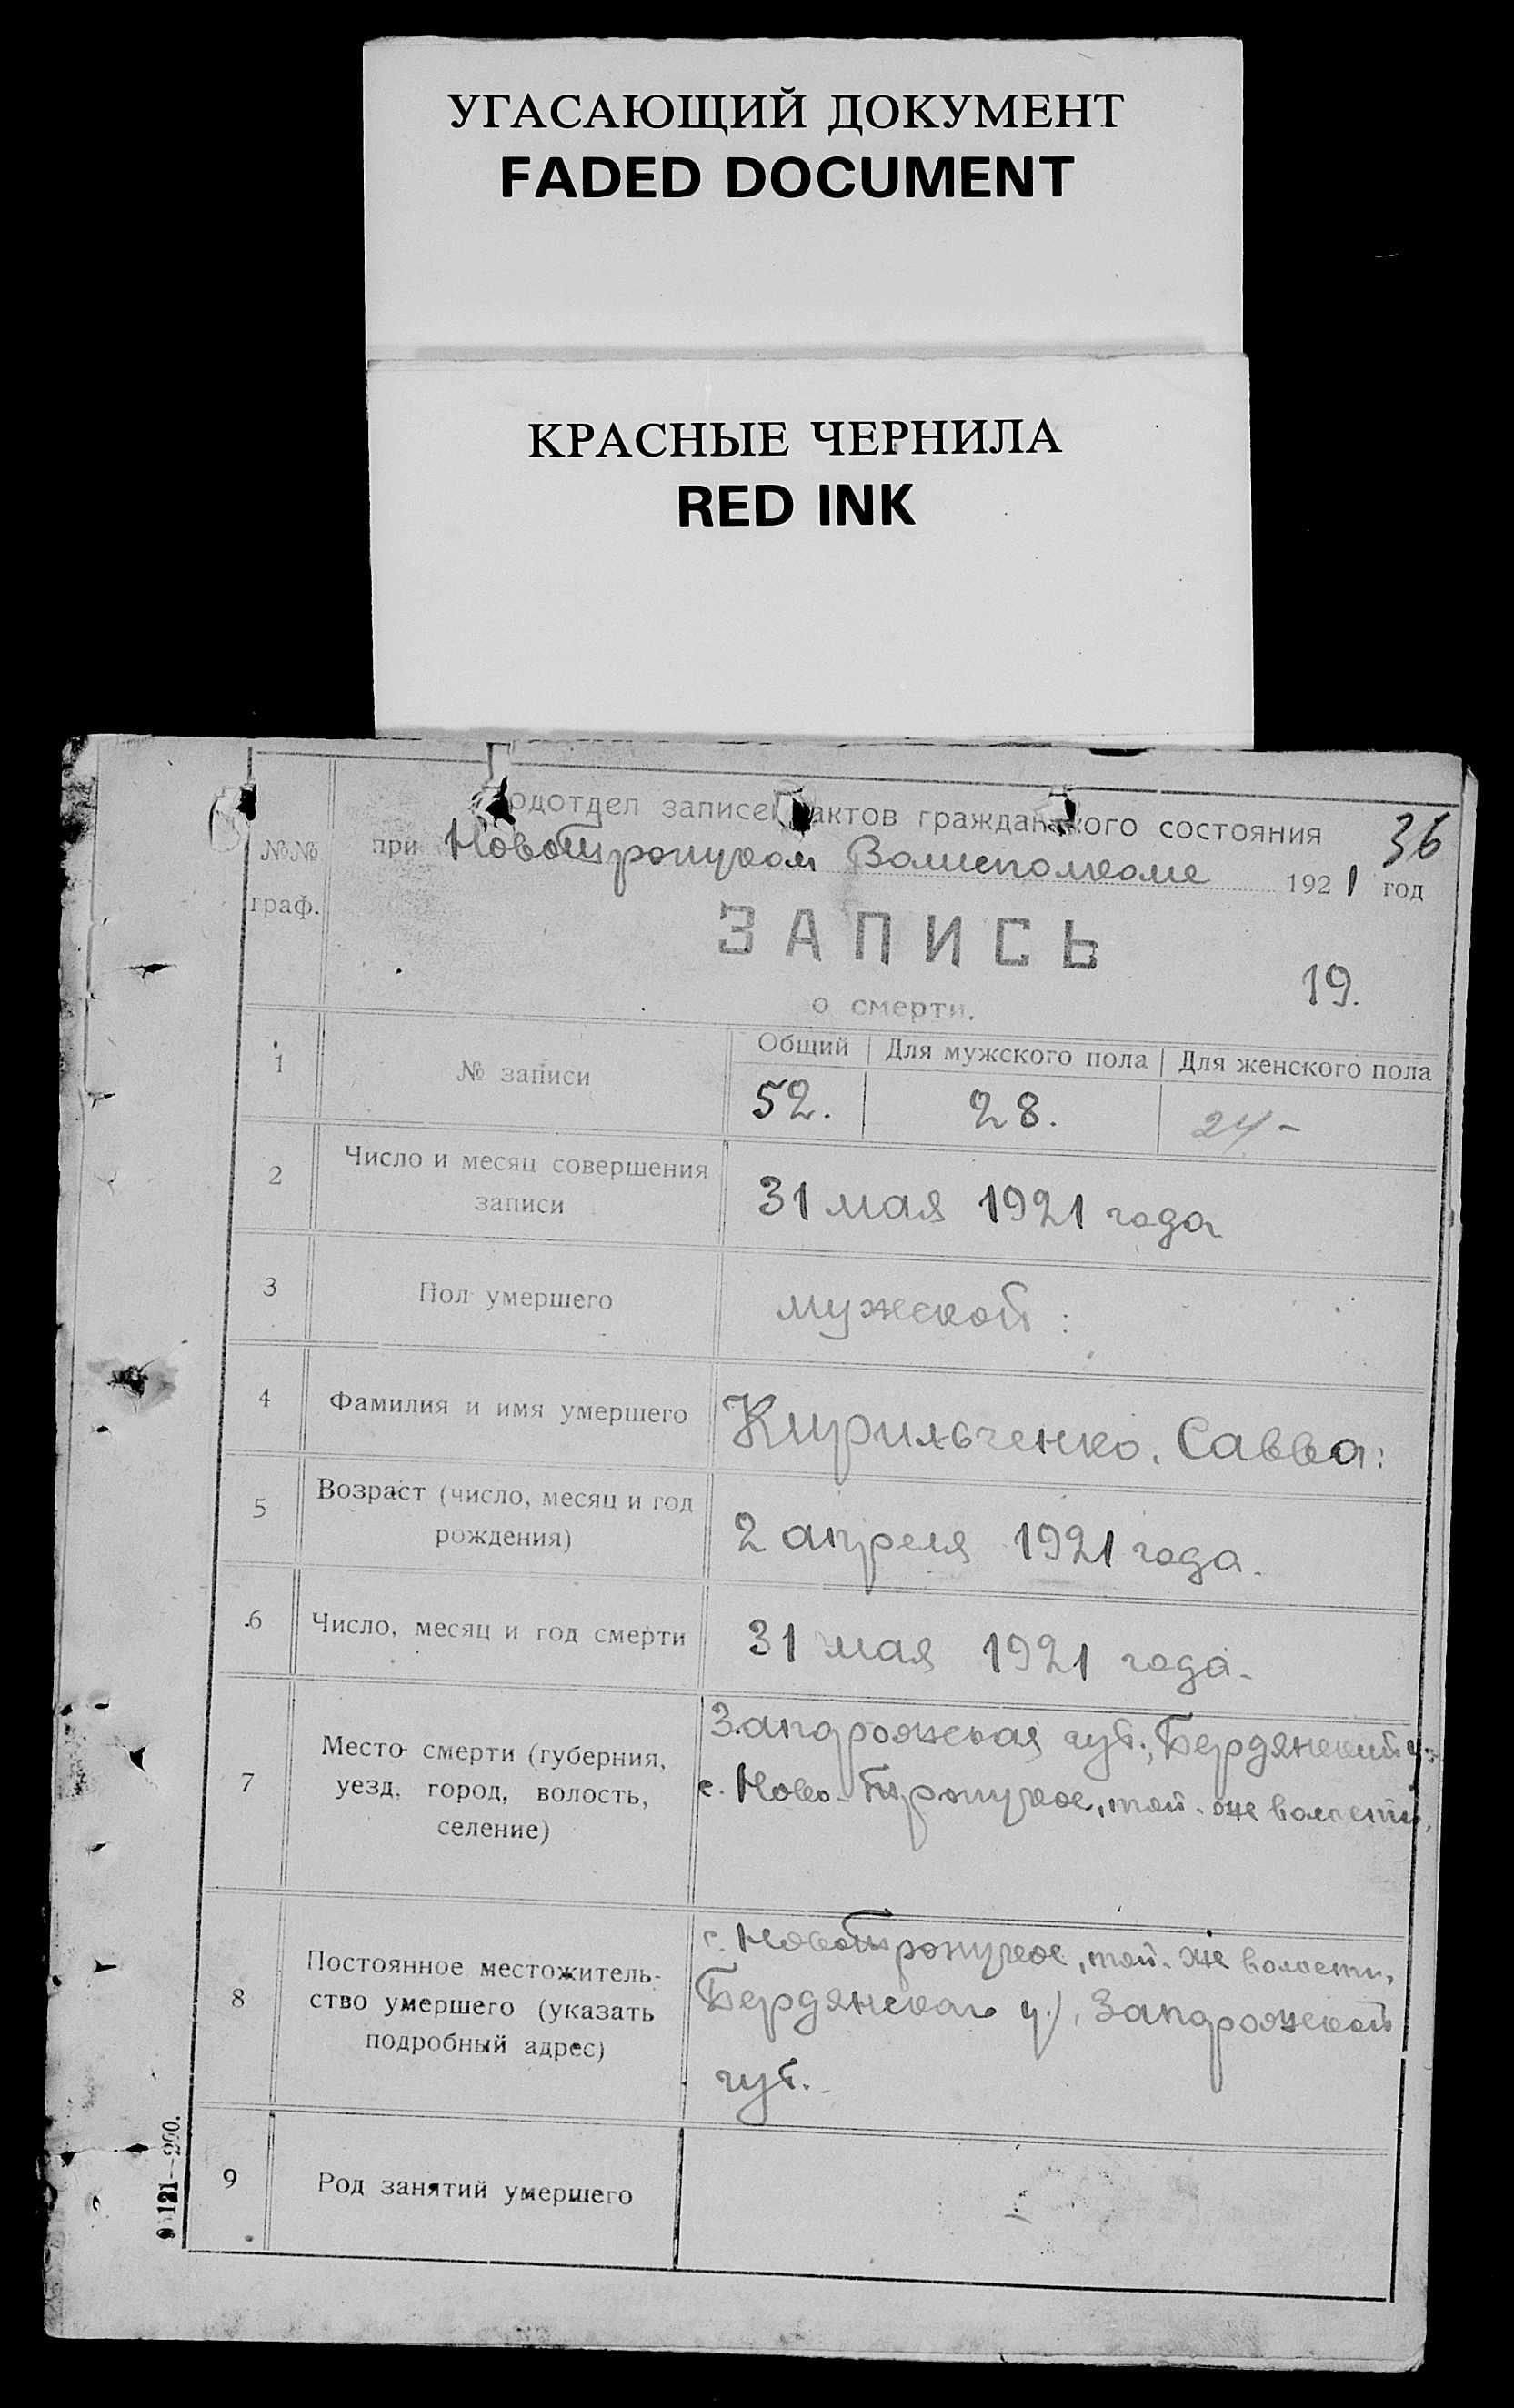 УГАСАЮЩИЙ ДОКУМЕНТ
FADED DOCUMENT
КРАСНЫЕ ЧЕРНИЛА
RED INK
Подотдел записей актов гражданского состояния 36
при Новотроицком Волисполкоме 1921 год
№№ граф.
ЗАПИСЬ
19.
о смерти.
1 № записи Общий Для мужского пола Для женского пола
52. 28. 24-
2 Число и месяц совершения
записи
31 мая 1921 года
3 Пол умершего мужской:
4 Фамилия и имя умершего Кирильченко. Савва:
5 Возраст (число, месяц и год
рождения)
2 апреля 1921 года.
6 Число, месяц и год смерти 31 мая 1921 года.
7 Место смерти (губерния,
уезд, город, волость,
селение)
Запорожская губ., Бердянский у.
с. Ново-Троицкое, той-же волости,
8 Постоянное местожитель-
ство умершего (указать
подробный адрес)
с. Новотроицкое, той-же волости,
Бердянского у., Запорожской
губ.
9 Род занятий умершего